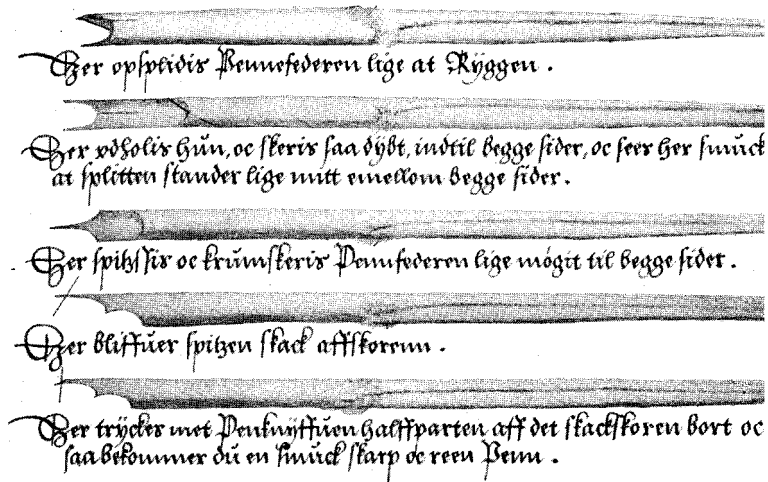 Her opsplidis Pennefederen lige at Rÿggen.
Her vdholis hun, oc skeris saa dÿbt, indtil begge sider, oc sees her smuck
at splitten stander lige mitt emellom begge sider.
Her spitzsis oc krumskeris Pennfederen lige mögit til begge sider.
Her bliffuer spitzen skack affskorenn.
Her trÿcker met Penknÿffuen halffparten aff det skackskoren bort oc
saa bekommer du en smuck skarp oc reen Penn.